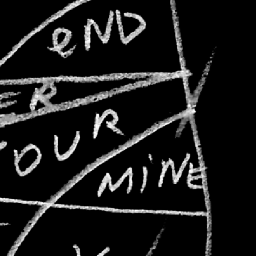 END
ER
OUR
MINE